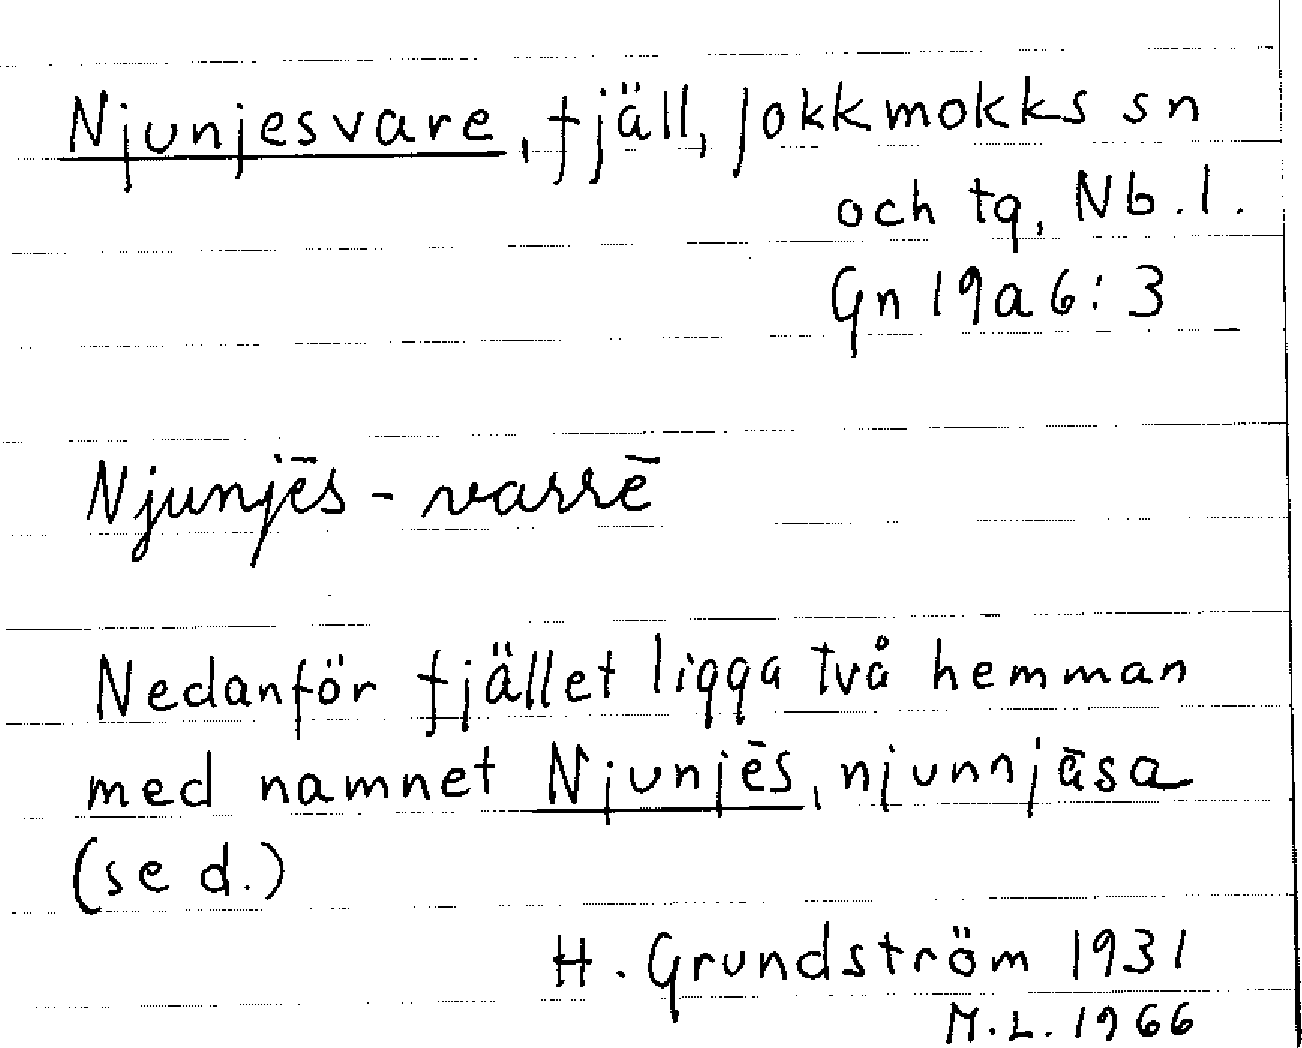 Njunjesvare, fjäll, Jokkmokks sn
och tg, Nb.l.
Gn 19a6:3
Njunjēs-varrē
Nedanför fjället ligga två hemman
med namnet Njunjēs, njunnjāsa
(se d.)
H. Grundström 1931
M.L. 1966